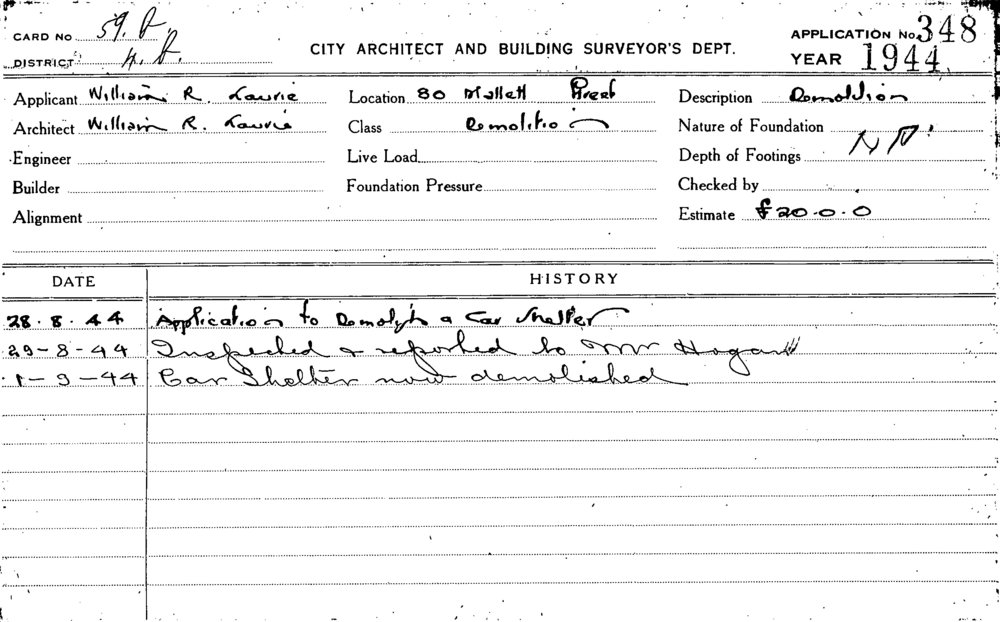 CARD NO 59. D
APPLICATION No. 348
DISTRICT 4. D.
CITY ARCHITECT AND BUILDING SURVEYOR'S DEPT.
YEAR 1944
Applicant William R. Laurie Location 80 Mallett Street Description Demolition
Architect William R. Laurie Class Demolition Nature of Foundation
Engineer Live Load Depth of Footings
Builder Foundation Pressure Checked by
Alignment Estimate £20.0.0
DATE HISTORY
28.8.44 Application to Demolish a Car Shelter
29-8-44 Inspected & reported to Mr Hogan
1-9-44 Car Shelter now demolished